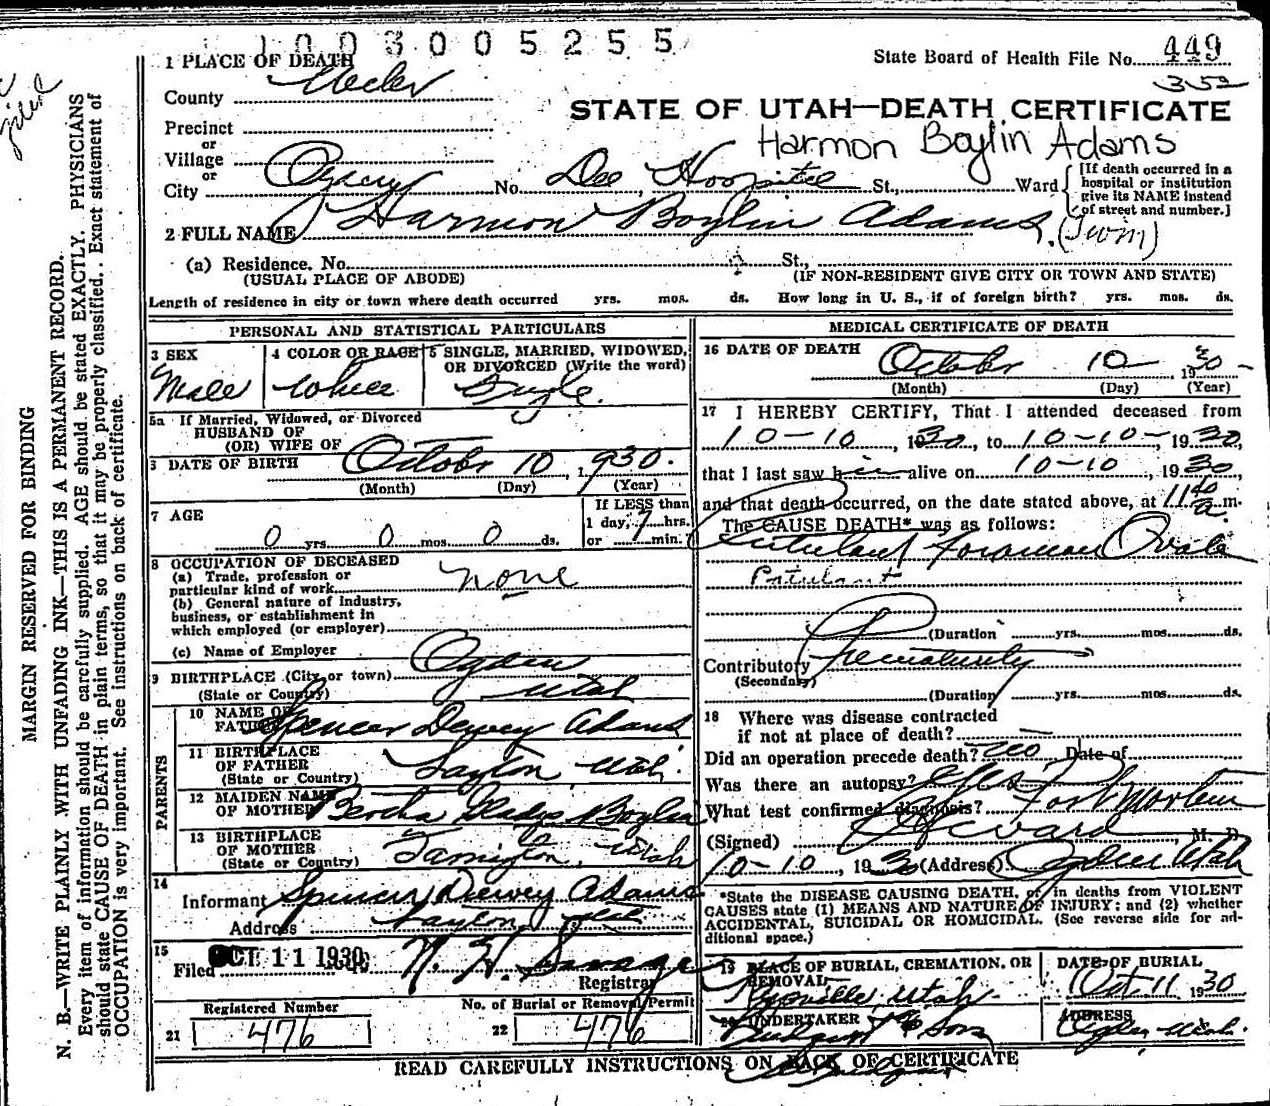 1003005255
State Board of Health File No. 449
352
1 PLACE OF DEATH
County Weber
STATE OF UTAH—DEATH CERTIFICATE
Precinct
or
Harmon Boylin Adams
Village
or
City Ogden No. Dee Hospital St., Ward
[If death occurred in a
hospital or institution
give its NAME instead
of street and number.]
2 FULL NAME Harmon Boylin Adams. (Twin)
(a) Residence. No. St.,
(USUAL PLACE OF ABODE) (IF NON-RESIDENT GIVE CITY OR TOWN AND STATE)
Length of residence in city or town where death occurred yrs. mos. ds. How long in U. S., if of foreign birth? yrs. mos. ds.
PERSONAL AND STATISTICAL PARTICULARS
3 SEX
Male
4 COLOR OR RACE
White
5 SINGLE, MARRIED, WIDOWED,
OR DIVORCED (Write the word)
Single.
5a If Married, Widowed, or Divorced
HUSBAND OF
(OR) WIFE OF
6 DATE OF BIRTH October 10 1930.
(Month) (Day) (Year)
7 AGE
0 yrs. 0 mos. 0 ds.
If LESS than
1 day, 7 hrs.
or min.
8 OCCUPATION OF DECEASED
(a) Trade, profession or
particular kind of work none
(b) General nature of industry,
business, or establishment in
which employed (or employer)
(c) Name of Employer
9 BIRTHPLACE (City or town) Ogden
(State or Country) Utah
PARENTS
10 NAME OF
FATHER Spencer Dewey Adams
11 BIRTHPLACE
OF FATHER
(State or Country) Layton Utah.
12 MAIDEN NAME
OF MOTHER Bertha Gladys Boylin
13 BIRTHPLACE
OF MOTHER
(State or Country) Farmington, Utah
14
Informant Spencer Dewey Adams
Address Layton, Utah
15
Filed OCT 11 1930, N. H. Savage
Registrar
Registered Number
21 476
No. of Burial or Removal Permit
22 476
MEDICAL CERTIFICATE OF DEATH
16 DATE OF DEATH October 10 1930
(Month) (Day) (Year)
17 I HEREBY CERTIFY, That I attended deceased from
10-10, 1930, to 10-10-1930,
that I last saw him alive on 10-10, 1930,
and that death occurred, on the date stated above, at 11 40 a. m.
The CAUSE DEATH* was as follows:
Patulant Foramen Ovale
Patulant
(Duration yrs. mos. ds.
Contributory Prematurity
(Secondary)
(Duration yrs. mos. ds.
18 Where was disease contracted
if not at place of death?
Did an operation precede death? no Date of
Was there an autopsy? Yes
What test confirmed diagnosis? Post Mortem
(Signed) M. D.
10-10, 1930 (Address) Ogden Utah
*State the DISEASE CAUSING DEATH, or in deaths from VIOLENT
CAUSES state (1) MEANS AND NATURE OF INJURY; and (2) whether
ACCIDENTAL, SUICIDAL OR HOMICIDAL. (See reverse side for ad-
ditional space.)
19 PLACE OF BURIAL, CREMATION, OR
REMOVAL
Kaysville, Utah.
DATE OF BURIAL
Oct. 11 1930
20 UNDERTAKER
& Sons
ADDRESS
Ogden Utah.
READ CAREFULLY INSTRUCTIONS ON BACK OF CERTIFICATE
MARGIN RESERVED FOR BINDING
N. B.—WRITE PLAINLY WITH UNFADING INK—THIS IS A PERMANENT RECORD.
Every item of information should be carefully supplied. AGE should be stated EXACTLY. PHYSICIANS
should state CAUSE OF DEATH in plain terms, so that it may be properly classified. Exact statement of
OCCUPATION is very important. See instructions on back of certificate.